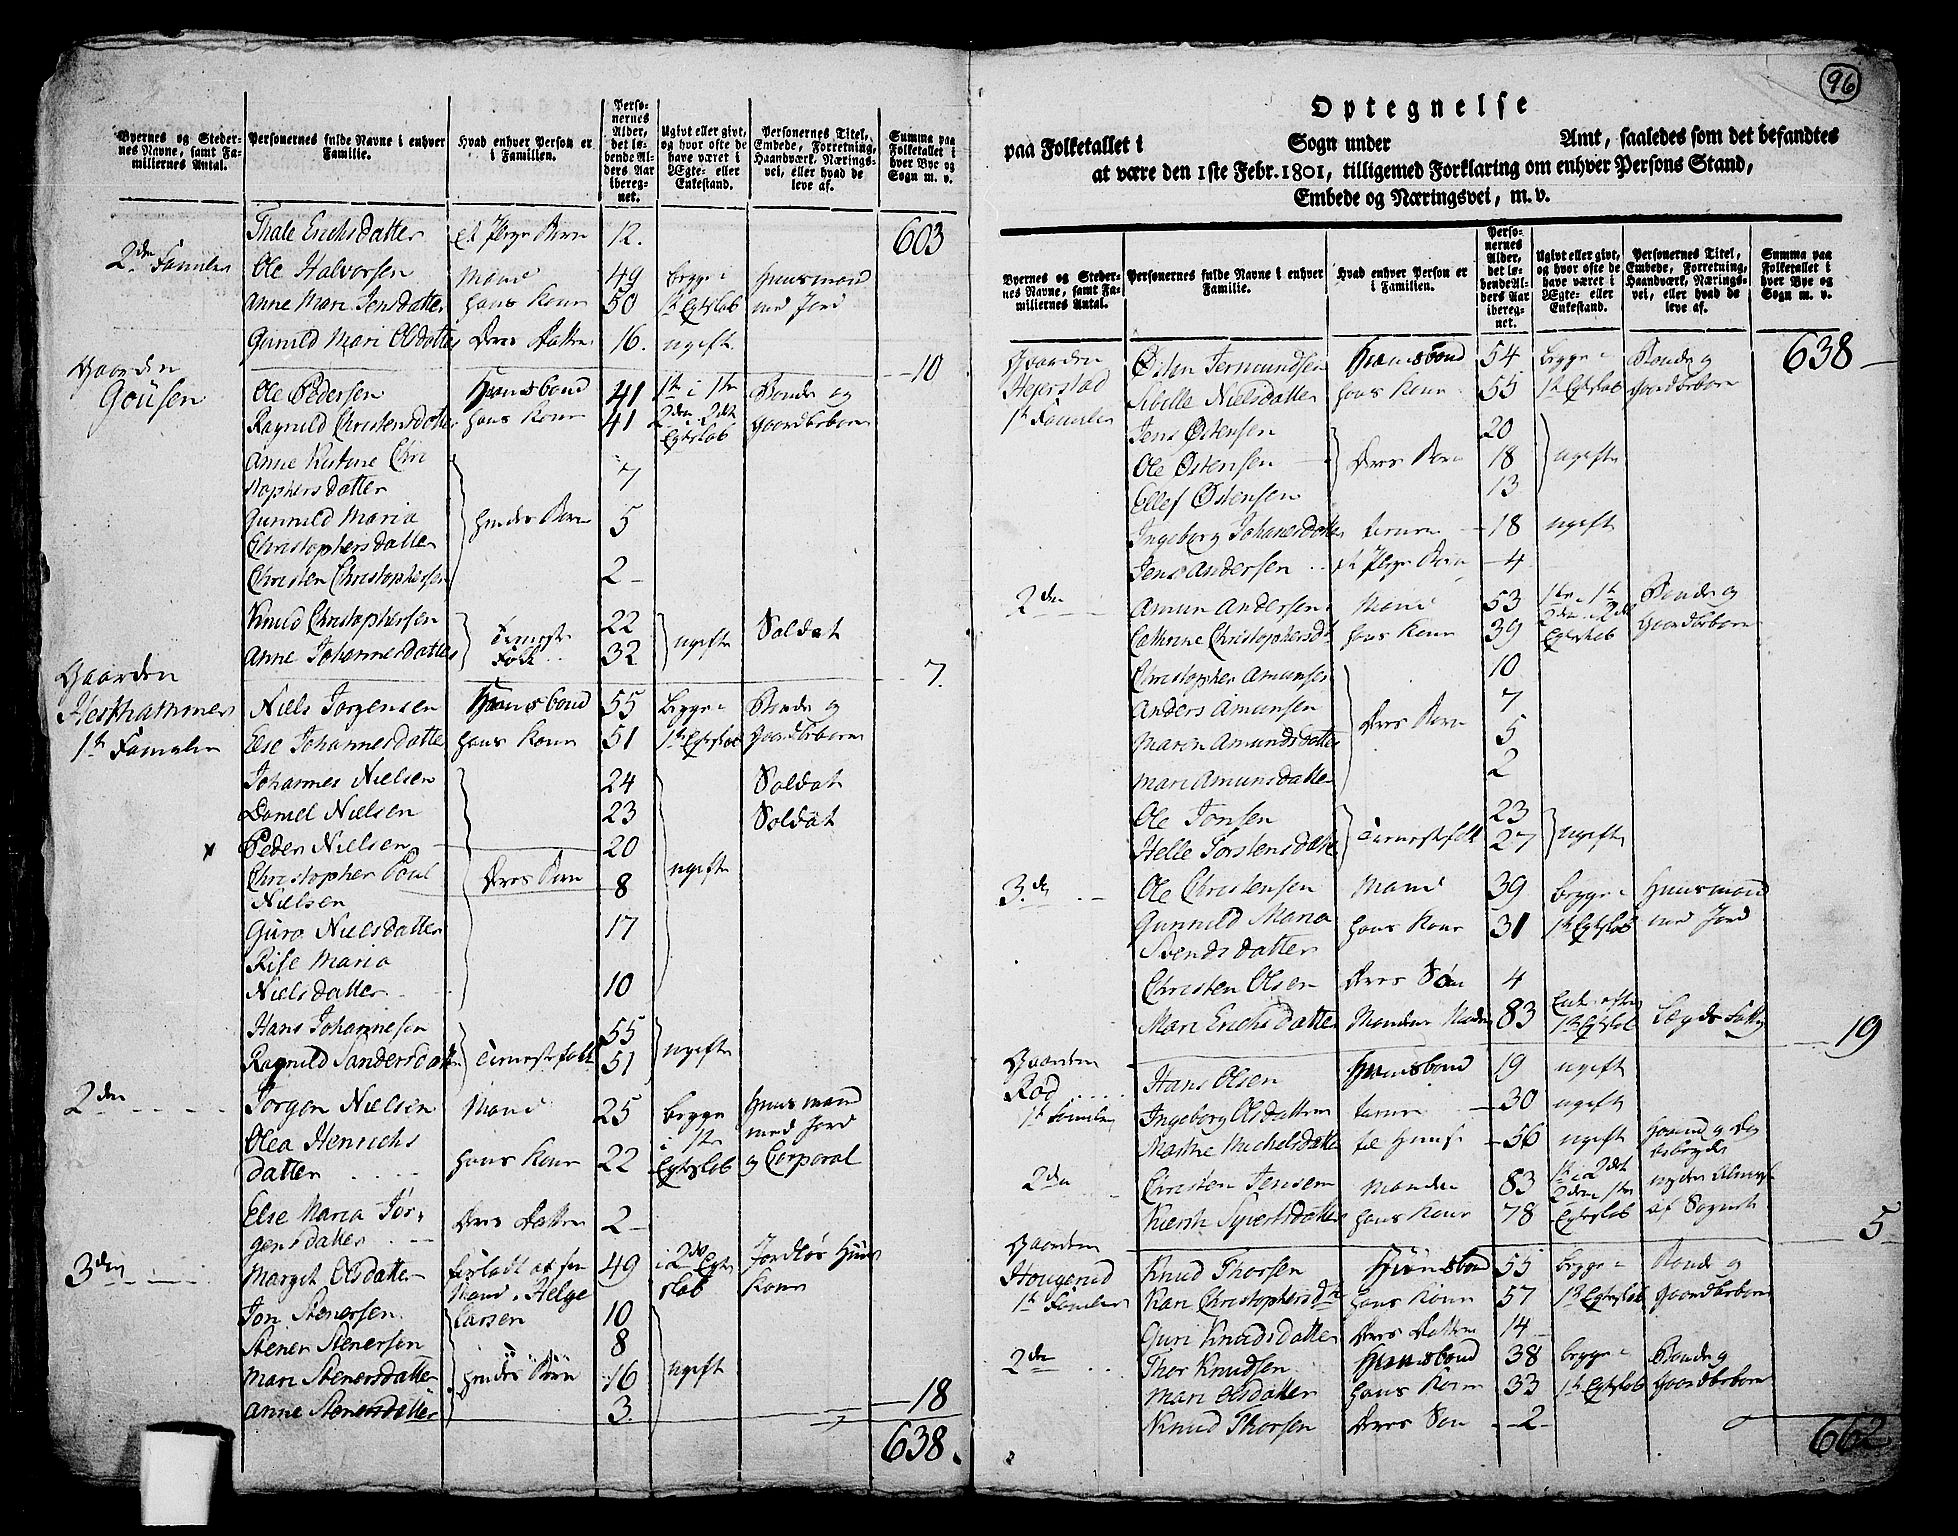 Byernes og Steder-
nes Navne, samt Fa-
miliernes Antal.
Personernes fulde Navne i enhver
Familie.
Hvad enhver Person er
i Familien.
Perso-
nernes
Alder,
det lø-
bende Al-
ders Aar
ibereg-
net.
Ugivt eller givt,
og hvor ofte de
have været i
Ægte- eller
Enkestand.
Personernes Titel,
Embede, Forretning,
Haandværk, Nærings-
vei, eller hvad de
leve af.
Summa paa
Folketallet i
hver Bye og
Sogn m. v.
Thale Erichsdatter et Pleye Barn 12. 603
2den Familie Ole Halvorsen Mand 49 begge i Huusmand
Anne Mari Jensdatter hans Kone 50 1ste Egteskab med Jord
Gunild Mari Olsdatter Deres Datter 16. ugift
Gaarden -10
Gousen Ole Pedersen Huusbond 41 1ste i 1ste Bonde og
Ragnild Christensdatter hans Kone 41 2den i 2det Gaardbeboer
Egteskab
Anne Kirstine Chri
stophersdatter 7
Gunnild Maria
Christophersdatter hendes Børn 5
Christen Christophersen 2-
Knud Christophersen 22 Soldat
Anne Johannesdatter Tieneste Folk 32 ugift
Gaarden 7.
Heskhammer Niels Jørgensen Huusbond 55 begge i Bonde og
1ste Familie Else Johannesdatter hans Kone 51 1ste Egteskab Gaardbeboer
Johannes Nielsen 24 Soldat
Daniel Nielsen 23 Soldat
x Peder Nielsen 20
Christopher Poul Deres Børn ugifte
Nielsen 8
Guro Nielsdatter 17
Rise Maria
Nielsdatter 10
Hans Johannesen 55
Ragnild Sandersdatter Tienestefolk 51 ugifte
2den Jørgen Nielsen Mand 25 begge Huusmand
med Jord
Olea Henrichs i 1ste
datter hans Kone 22 Egteskab og Corporal
Else Maria Jør-
gensdatter Deres Datter 2-
3den Margit Olsdatter forladt af sin 49 i 2det Egte Jordløs Huus
Mand Helge skab Kone
Jon Stenersen Larsen 10
Stener Stenersen 8
Mari Stenersdatter hendes Børn 16 ugift
Anne Stenersdatter 3. 18
638.
96
Optegnelse
paa Folketallet i Sogn under Amt, saaledes som det befandtes
at være den 1ste Febr. 1801, tilligemed Forklaring om enhver Persons Stand,
Embede og Næringsvei, m. v.
Byernes og Steder-
nes Navne, samt Fa-
miliernes Antal.
Personernes fulde Navne i enhver
Familie.
Hvad enhver Person er
i Familien.
Perso-
nernes
Alder,
det lø-
bende Al-
ders Aar
ibereg-
net.
Ugivt eller givt,
og hvor ofte de
have været i
Ægte- eller
Enkestand.
Personernes Titel,
Embede, Forretning,
Haandværk, Nærings-
vei, eller hvad de
leve af.
Summa paa
Folketallet i
hver Bye og
Sogn m. v.
Gaarden Østen Jermundsen Huusbond 54 begge i Bonde og 638
Hejerstad Sibelle Nielsdatter hans Kone 55 1ste Egteskab Gaardbeboer
1ste Familie Jens Østensen 20
Ole Østensen Deres Børn 18 ugifte
Ellef Østensen 13
Ingeborg Johanesdatter terne 18 ugift
Jens Andersen et Pleye Barn 4
2den Amun Andersen Mand 53 1ste i 1ste Bonde og
2den i 2det
Cathrine Christophersdtr hans Kone 39 Egteskab Gaardbeboer
Christopher Amunsen 10
Anders Amunsen 7
Maren Amundsdatter Deres Børn 5
Mari Amunsdatter 2
Ole Jonsen 23
Helle Torstensdatter Tienestefolk 27 ugifte
3de Ole Christensen Mand 39 begge i Huusmand
Gunnild Maria hans Kone 31 1ste Egteskab med Jord
Svendsdatter
Christen Olsen Deres Søn 4
Mari Erichsdatter Mandens Moder 83 Enke efter
1ste Egteskab Lægds Fattig
19
Gaarden
Rød Hans Olsen Huusbond 19 ugift
1ste Familie Ingeborg Olsdatter terne 30 ugift
Marthe Michelsdatter til Huuse 56 ugift
2den Christen Jensen Manden 83 1ste i 2det nyder Almisse
2den i 1ste
Kiersti Syvertsdatter hans Kone 78 Egteskab af Sognet
5
Gaarden
Hougerud Knud Thorsen Huusbond 55 begge i Bonde og
1ste Familie Kari Christophersdtr hans Kone 57 1ste Egteskab Gaardbeboer
Guri Knudsdatter Deres Datter 14
2den Thor Knudsen Huusbond 38 begge i Bonde og
Mari Olsdatter hans Kone 33 1ste Egteskab Gaardbeboer
Knud Thorsen Deres Søn -2-
662